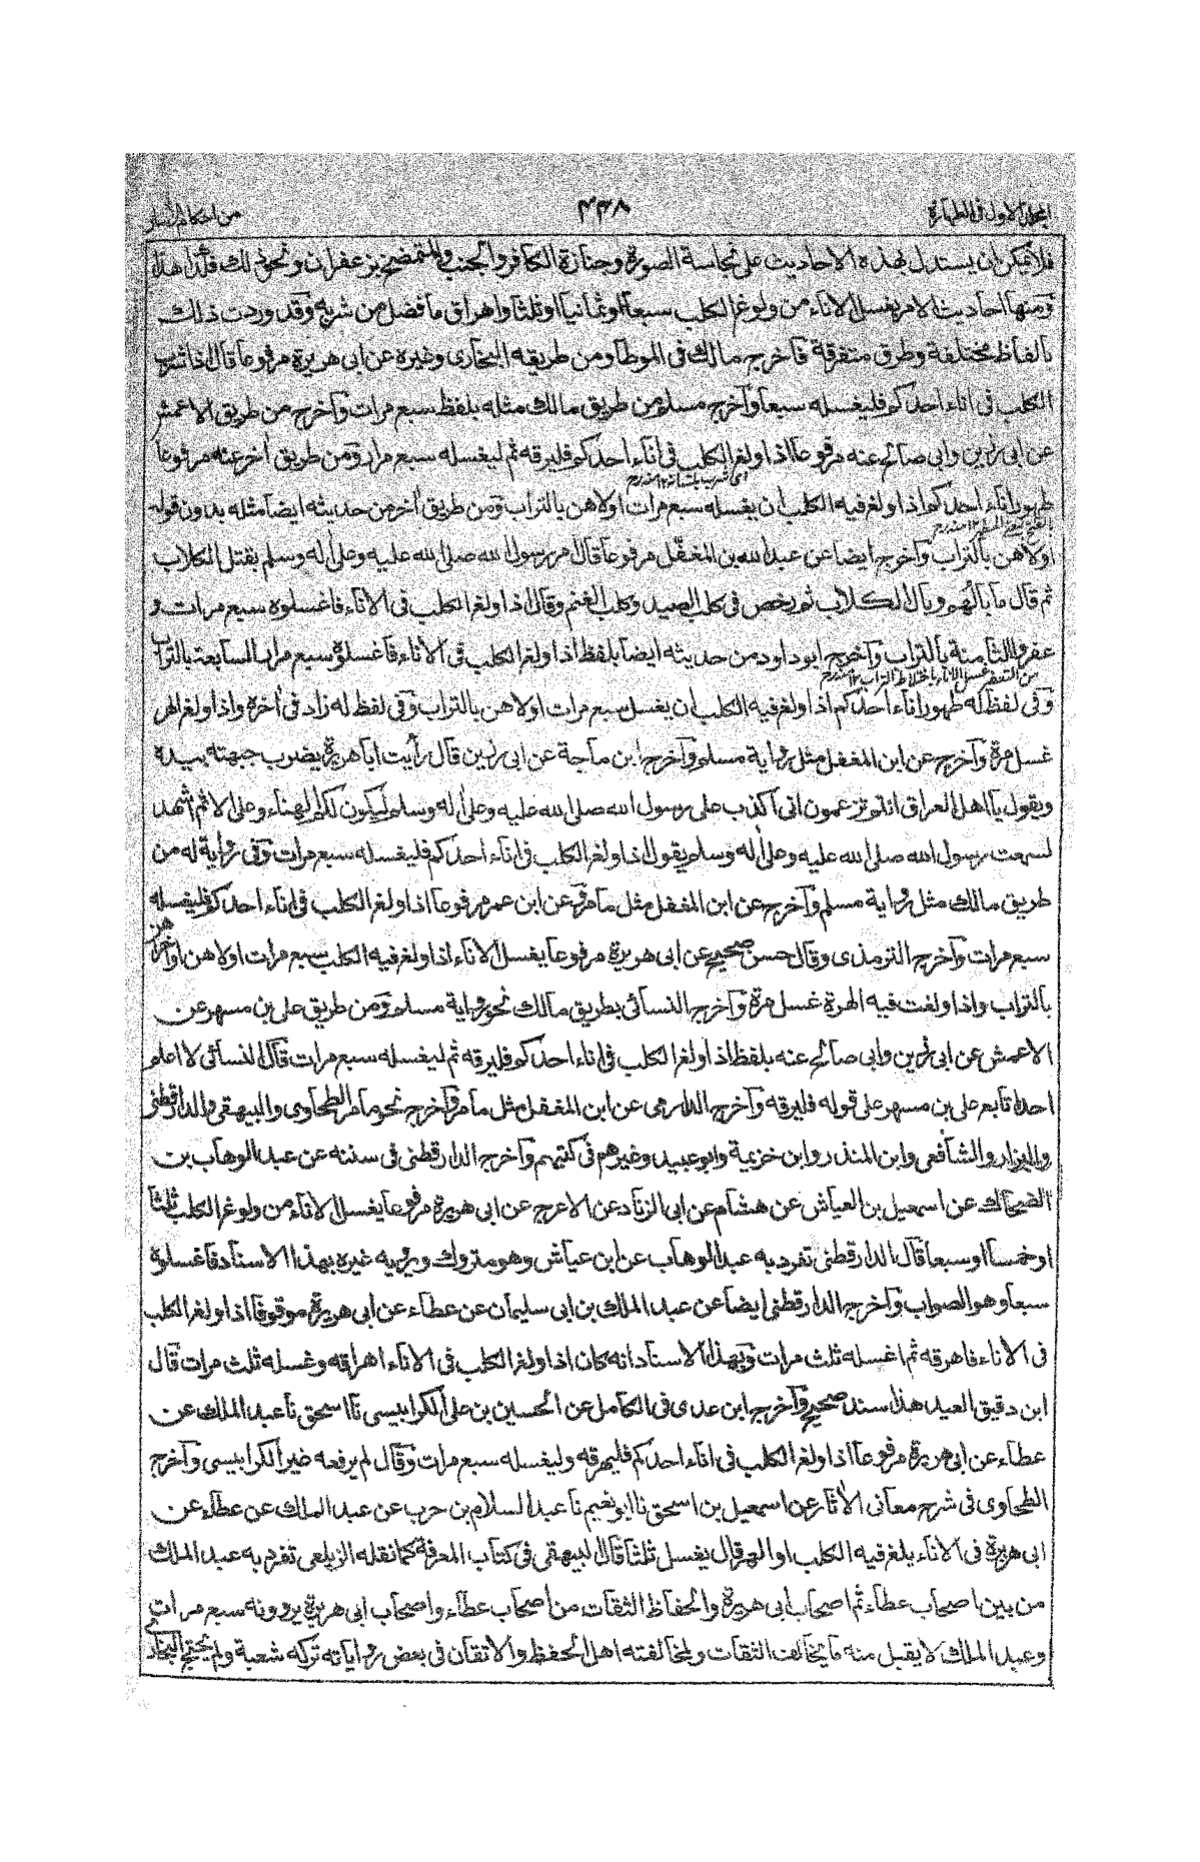 المجلد الاول فى الطهارة
٤٣٨
من احكام الاسار
فلا يمكن ان يستدل بهذه الاحاديث على نجاسة الصورة وجنازة الكافر والجنب والمتمضخ بزعفران ونحو ذلك فكذا هذا
ومنها احاديث الامر بغسل الاناء من ولوغ الكلب سبعا او ثمانيا او ثلثا واهراق ما فضل من شربه وقد وردت ذلك
بالفاظ مختلفة وطرق متفرقة فاخرج مالك فى الموطأ ومن طريقه البخارى وغيره عن ابى هريرة مرفوعا قال اذا شرب
الكلب فى اناء احدكم فليغسله سبعا واخرج مسلم من طريق مالك مثله بلفظ سبع مرات واخرج من طريق الاعمش
عن ابى رزين وابى صالح عنه مرفوعا اذا ولغ الكلب فى اناء احدكم فليرقه ثم ليغسله سبع مرار ومن طريق اخر عنه مرفوعا
اى شرب بلسانه ١٢ منه رح
طهور اناء احدكم اذا ولغ فيه الكلب ان يغسله سبع مرات اولاهن بالتراب ومن طريق اخر من حديثه ايضا مثله بدون قوله
اولاهن بالتراب واخرج ايضا عن عبد الله بن المغفل مرفوعا قال امر رسول الله صلى الله عليه وعلى اله وسلم بقتل الكلاب
ثم قال ما بالهم وبال الكلاب ثم رخص فى كلب الصيد وكلب الغنم وقال اذا ولغ الكلب فى الاناء فاغسلوه سبع مرات و
عفروا الثامنة بالتراب واخرج ابو داود من حديثه ايضا بلفظ اذا ولغ الكلب فى الاناء فاغسلوه سبع مرار السابعة بالتراب
من التعفير غسل الاناء باختلاط التراب ١٢ منه رح
وفى لفظ له طهور اناء احدكم اذا ولغ فيه الكلب ان يغسل سبع مرات اولاهن بالتراب وفى لفظ له زاد فى اخره واذا ولغ الهر
غسل مرة واخرج عن ابن المغفل مثل رواية مسلم واخرج ابن ماجة عن ابى رزين قال رأيت ابا هريرة يضرب جبهته بيده
ويقول يا اهل العراق انتم تزعمون انى اكذب على رسول الله صلى الله عليه وعلى اله وسلم ليكون لكم الهناء وعلى الاثم اشهد
لسمعت رسول الله صلى الله عليه وعلى اله وسلم يقول اذا ولغ الكلب فى اناء احدكم فليغسله سبع مرات وفى رواية له من
طريق مالك مثل رواية مسلم واخرج عن ابن المغفل مثل ما مر وعن ابن عمر مرفوعا اذا ولغ الكلب فى اناء احدكم فليغسله
سبع مرات واخرج الترمذى وقال حسن صحيح عن ابى هريرة مرفوعا يغسل الاناء اذا ولغ فيه الكلب سبع مرات اولاهن او اخراهن
بالتراب واذا ولغت فيه الهرة غسل مرة واخرج النسائى بطريق مالك نحو رواية مسلم ومن طريق على بن مسهر عن
الاعمش عن ابى رزين وابى صالح عنه بلفظ اذا ولغ الكلب فى اناء احدكم فليرقه ثم ليغسله سبع مرات قال النسائى لا اعلم
احدا تابع على بن مسهر على قوله فليرقه واخرج الدارمى عن ابن المغفل مثل ما مر واخرج نحو ما مر الطحاوى والبيهقى والدارقطنى
والبزار والشافعى وابن المنذر وابن خزيمة وابو عبيد وغيرهم فى كتبهم واخرج الدارقطنى فى سننه عن عبد الوهاب بن
الضحاك عن اسمعيل بن العياش عن هشام عن ابى الزناد عن الاعرج عن ابى هريرة مرفوعا يغسل الاناء من ولوغ الكلب ثلثا
او خمسا او سبعا قال الدارقطنى تفرد به عبد الوهاب عن ابن عياش وهو متروك ويرويه غيره بهذا الاسناد فاغسلوه
سبعا وهو الصواب واخرج الدارقطنى ايضا عن عبد الملك بن ابى سليمان عن عطاء عن ابى هريرة موقوفا اذا ولغ الكلب
فى الاناء فاهرقه ثم اغسله ثلث مرات وبهذا الاسناد انه كان اذا ولغ الكلب فى الاناء اهراقه وغسله ثلث مرات قال
ابن دقيق العيد هذا سند صحيح واخرج ابن عدى فى الكامل عن الحسين بن على الكرابيسى نا اسحق نا عبد الملك عن
عطاء عن ابى هريرة مرفوعا اذا ولغ الكلب فى اناء احدكم فليهرقه وليغسله سبع مرات وقال لم يرفعه غير الكرابيسى واخرج
الطحاوى فى شرح معانى الاثار عن اسمعيل بن اسحق نا ابو نعيم نا عبد السلام بن حرب عن عبد الملك عن عطاء عن
ابى هريرة فى الاناء يلغ فيه الكلب او الهر قال يغسل ثلثا قال البيهقى فى كتاب المعرفة كما نقله الزيلعى تفرد به عبد الملك
من بين اصحاب عطاء ثم اصحاب ابى هريرة والحفاظ الثقات من اصحاب عطاء واصحاب ابى هريرة يروونه سبع مرات
وعبد الملك لا يقبل منه ما يخالف الثقات ولمخالفته اهل الحفظ والاتقان فى بعض رواياته تركه شعبة ولم يحتج به البخارى